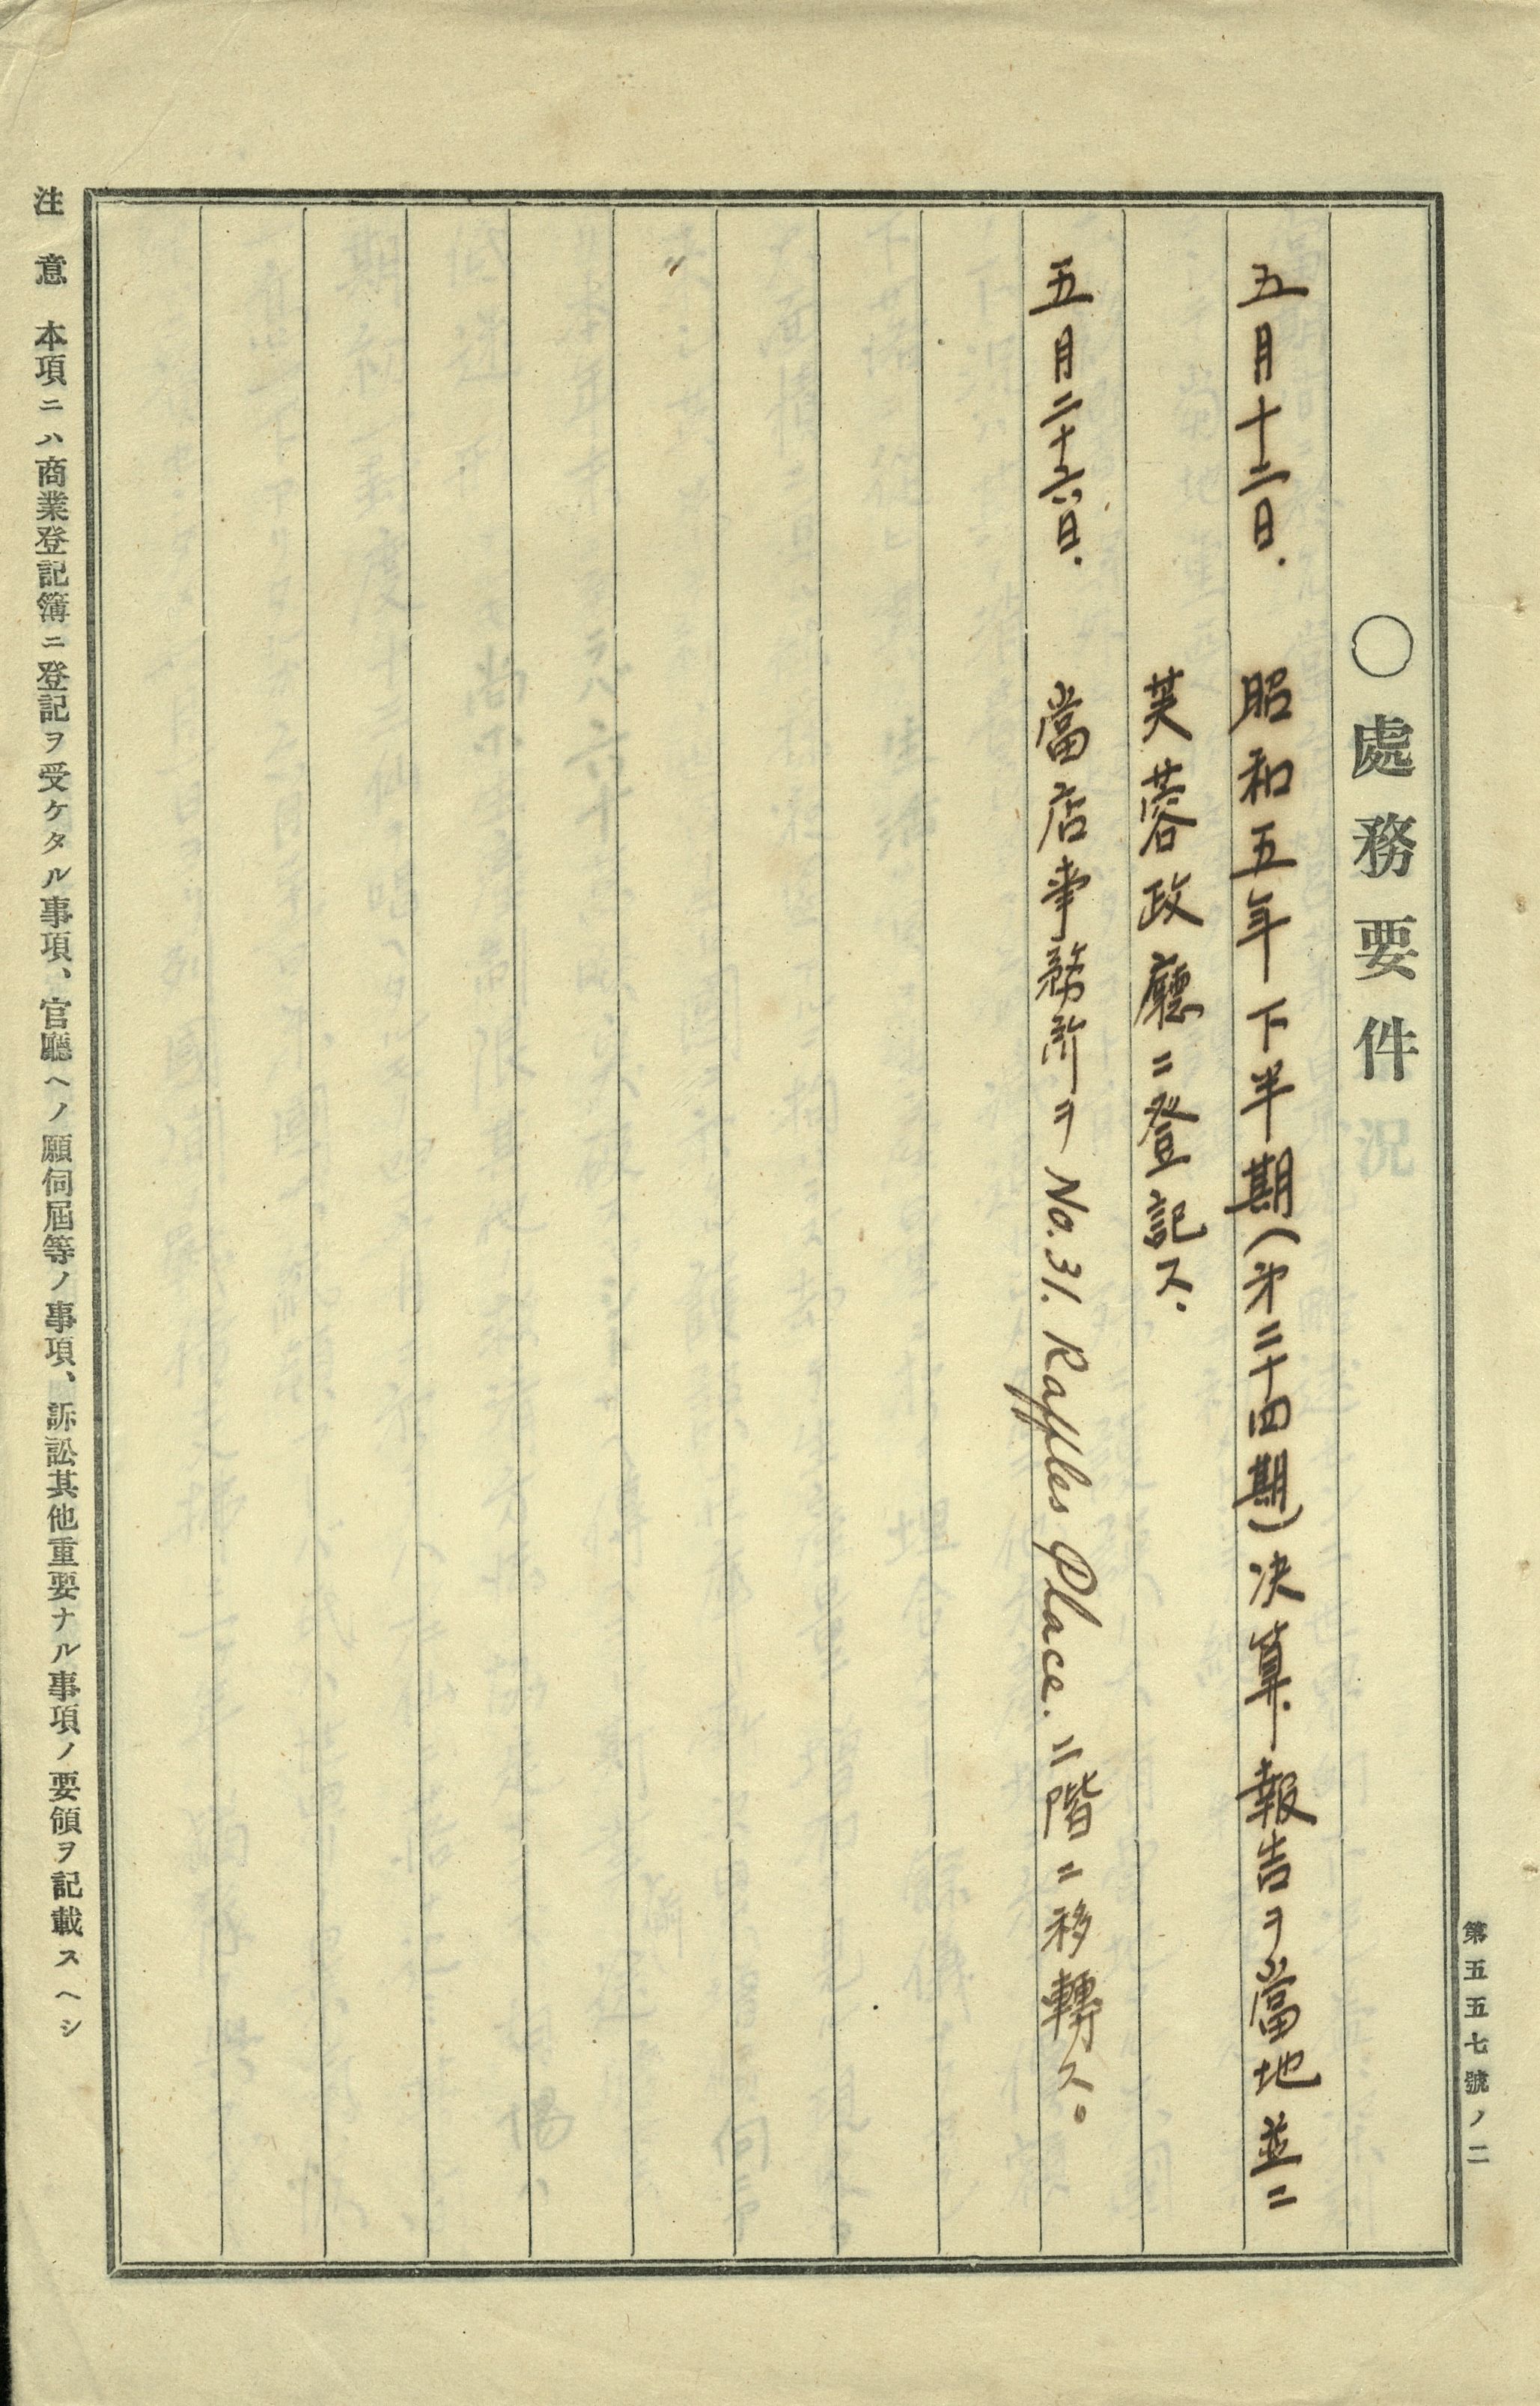 第五五七號ノ二
〇處務要件
五月十二日. 昭和五年下半期(第二十四期)決算報告ヲ當地並ニ
芙蓉政廳ニ登記ス.
五月二十六日. 當店事務所ヲ No.31. Raffles Place. 二階ニ移轉ス。
注意 本項ニハ商業登記簿ニ登記ヲ受ケタル事項、官廳ヘノ願伺屆等ノ事項、訴訟其他重要ナル事項ノ要領ヲ記載スヘシ